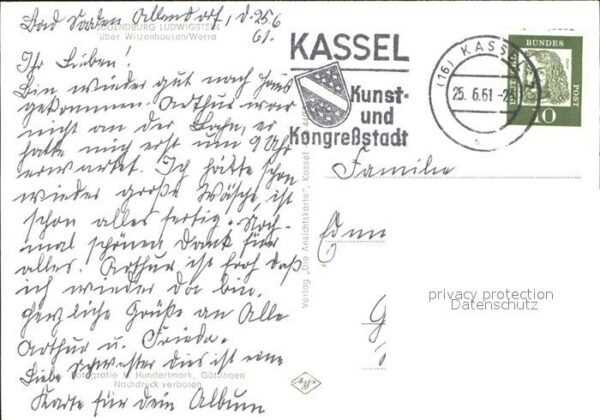 Bad Sooden Allendorf, d. 25.6
61.
JUGENDBURG LUDWIGSTEIN
über Witzenhausen/Werra
Ihr Lieben!
Bin wieder gut nach Haus
gekommen. Arthur war
nicht an der Bahn, er
hatte mich erst um 9 Uhr
erwartet. Ich hätte schon
wieder große Wäsche, ist
schon alles fertig. Noch-
mal schönen Dank für
alles. Arthur ist froh daß
ich wieder da bin.
Herzliche Grüße an Alle
Arthur u. Frieda.
Liebe Schwester dies ist eine
Fotografie U. Hundertmark, Göttingen
Nachdruck verboten
Karte für dein Album
Verlag „Die Ansichtskarte", Kassel
KASSEL
Kunst-
und
Kongreßstadt
(16) KASSEL
25.6.61
DEUTSCHE
BUNDES
POST
10
Familie
Edmu
G
privacy protection
Datenschutz